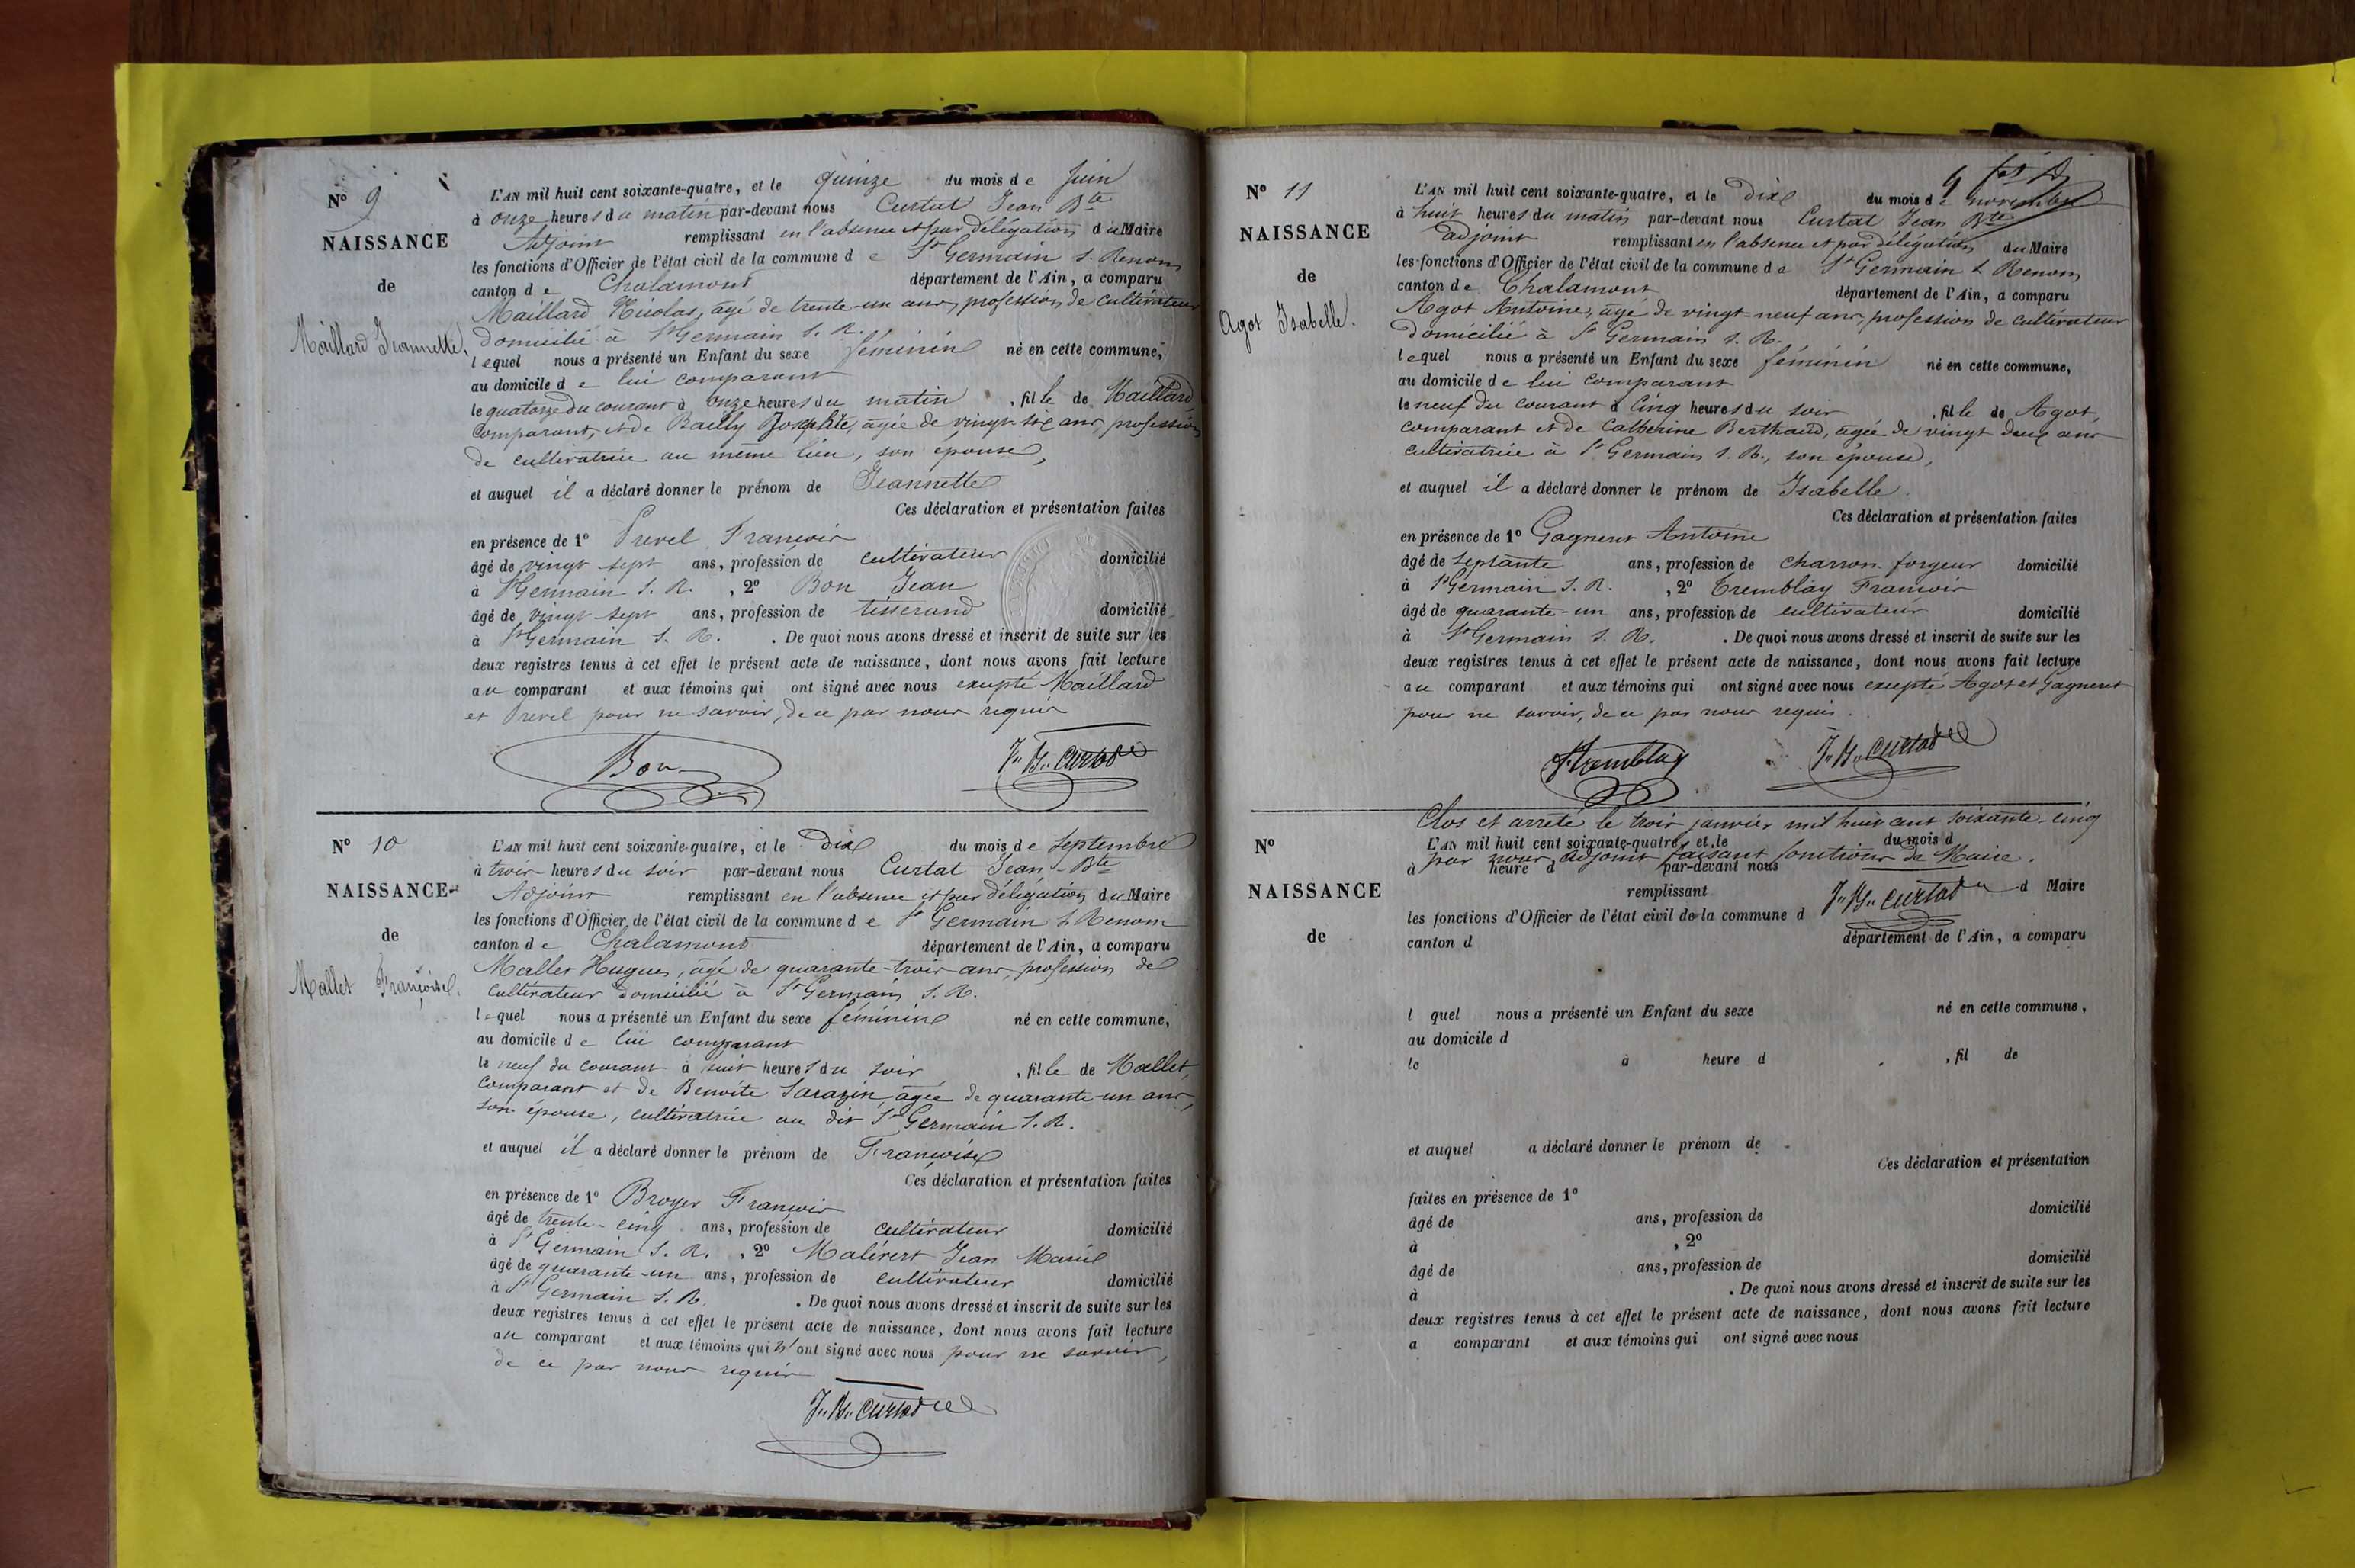 N° 9
NAISSANCE
de
Maillard Jeannette.
L'AN mil huit cent soixante-quatre, et le quinze du mois de Juin
à onze heures du matin par-devant nous Curtat Jean Bte
Adjoint remplissant en l'absence et par délégation du Maire
les fonctions d'Officier de l'état civil de la commune de St Germain s. Renom
canton de Chalamont département de l'Ain, a comparu
Maillard Nicolas, âgé de trente-un ans, profession de cultivateur
domicilié à St Germain s. R.
lequel nous a présenté un Enfant du sexe féminin né en cette commune,
au domicile de lui comparant
le quatorze du courant à onze heures du matin, fille de Maillard
comparant, et de Bailly Josephte, agée de vingt-six ans, profession
de cultivatrice au même lieu, son épouse,
et auquel il a déclaré donner le prénom de Jeannette
Ces déclaration et présentation faites
en présence de 1° Prevel François
âgé de vingt sept ans, profession de cultivateur domicilié
à St Germain S. R. , 2° Bon Jean
âgé de vingt sept ans, profession de tisserand domicilié
à St Germain S. R. . De quoi nous avons dressé et inscrit de suite sur les
deux registres tenus à cet effet le présent acte de naissance, dont nous avons fait lecture
au comparant et aux témoins qui ont signé avec nous excepté Maillard
et Prevel pour ne savoir, de ce par nous requis
Bon J. B. Curtat
N° 10
NAISSANCE
de
Mallet Françoise.
L'AN mil huit cent soixante-quatre, et le Dix du mois de Septembre
à trois heures du soir par-devant nous Curtat Jean-Bte
Adjoint remplissant en l'absence et par délégation du Maire
les fonctions d'Officier de l'état civil de la commune de St Germain s. Renom
canton de Chalamont département de l'Ain, a comparu
Mallet Hugues, âgé de quarante-trois ans, profession de
cultivateur domicilié à St Germain S. R.
lequel nous a présenté un Enfant du sexe féminin né en cette commune,
au domicile de lui comparant
le neuf du courant à huit heures du soir, fille de Mallet,
comparant et de Benoite Sarazin, âgée de quarante-un ans,
son épouse, cultivatrice au dit St Germain S. R.
et auquel il a déclaré donner le prénom de Françoise
Ces déclaration et présentation faites
en présence de 1° Broyer François
âgé de trente-cinq ans, profession de cultivateur domicilié
à St Germain S. R. , 2° Malivert Jean Marie
âgé de quarante-un ans, profession de cultivateur domicilié
à St Germain S. R. . De quoi nous avons dressé et inscrit de suite sur les
deux registres tenus à cet effet le présent acte de naissance, dont nous avons fait lecture
au comparant et aux témoins qui n'ont signé avec nous pour ne savoir,
de ce par nous requis
J. B. Curtat
N° 11
NAISSANCE
de
Agot Isabelle.
L'AN mil huit cent soixante-quatre, et le Dix du mois de novembre
à huit heures du matin par-devant nous Curtat Jean Bte
adjoint remplissant en l'absence et par délégation du Maire
les fonctions d'Officier de l'état civil de la commune de St Germain s. Renom
canton de Chalamont département de l'Ain, a comparu
Agot Antoine, âgé de vingt-neuf ans, profession de cultivateur
domicilié à St Germain S. R.
lequel nous a présenté un Enfant du sexe féminin né en cette commune,
au domicile de lui comparant
le neuf du courant à cinq heures du soir, fille de Agot,
comparant et de Catherine Berthaud, agée de vingt deux ans
cultivatrice à St Germain S. R., son épouse,
et auquel il a déclaré donner le prénom de Isabelle.
Ces déclaration et présentation faites
en présence de 1° Gagneret Antoine
âgé de septante ans, profession de charron forgeur domicilié
à St Germain S. R. , 2° Tremblay François
âgé de quarante-un ans, profession de cultivateur domicilié
à St Germain S. R. . De quoi nous avons dressé et inscrit de suite sur les
deux registres tenus à cet effet le présent acte de naissance, dont nous avons fait lecture
au comparant et aux témoins qui ont signé avec nous excepté Agot et Gagneret
pour ne savoir, de ce par nous requis.
Ftremblay J. B. Curtat
Clos et arrêté le trois janvier mil huit cent soixante-cinq
N°
NAISSANCE
de
L'AN mil huit cent soixante-quatre, et le du mois d
par nous, adjoint faisant fonctions de Maire.
à heure d par-devant nous
remplissant d Maire
J. B. Curtat
les fonctions d'Officier de l'état civil de la commune d
canton d département de l'Ain, a comparu
l quel nous a présenté un Enfant du sexe né en cette commune,
au domicile d
le à heure d , fil de
et auquel a déclaré donner le prénom de
Ces déclaration et présentation
faites en présence de 1°
âgé de ans, profession de domicilié
à , 2°
âgé de ans, profession de domicilié
à . De quoi nous avons dressé et inscrit de suite sur les
deux registres tenus à cet effet le présent acte de naissance, dont nous avons fait lecture
a comparant et aux témoins qui ont signé avec nous